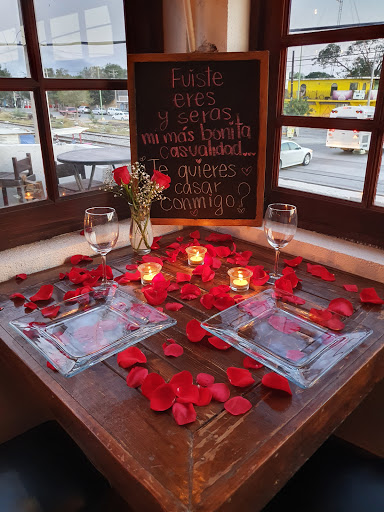 Fuiste
eres
y serás
mi más bonita
casualidad...
¿Te quieres
casar
conmigo?